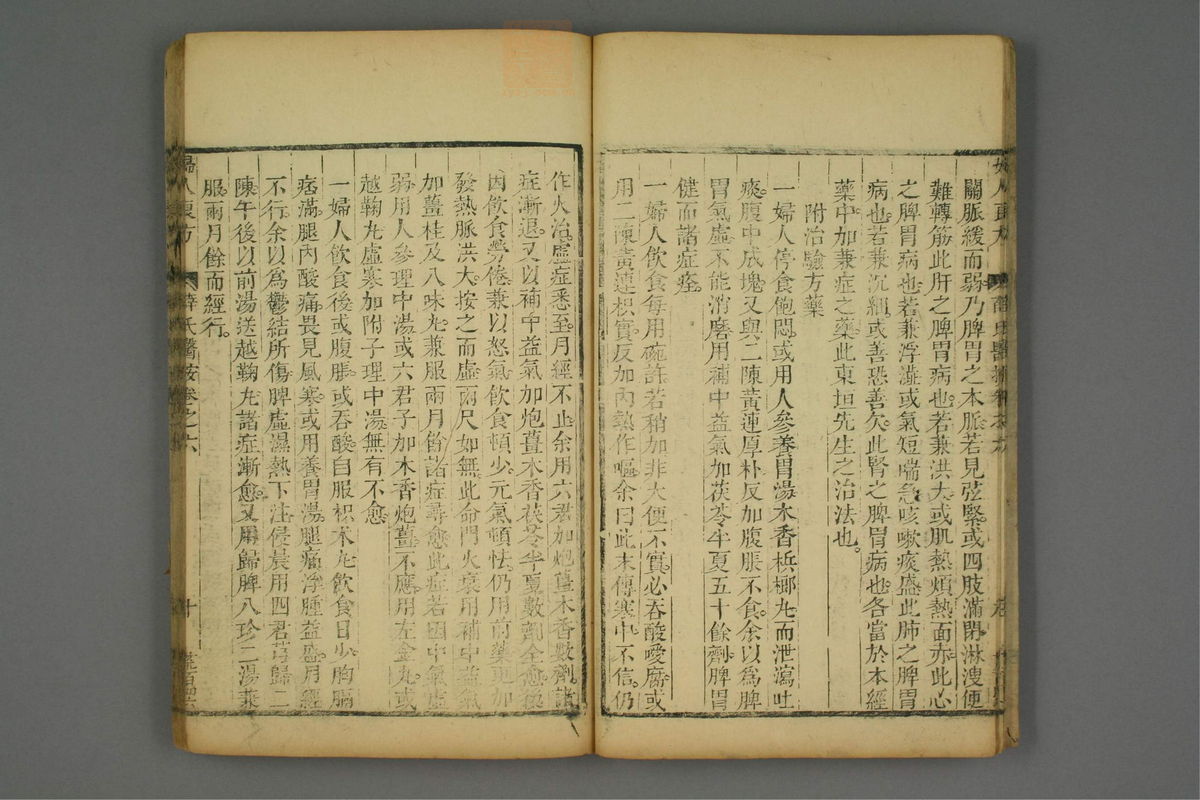 關脈緩而弱乃脾胃之本脈若見弦緊或四肢滿閉淋溲便
難轉筋此肝之脾胃病也若兼洪大或肌熱煩熱面赤此心
之脾胃病也若兼浮濇或氣短喘急咳嗽痰盛此肺之脾胃
病也若兼沉細或善恐善欠此腎之脾胃病也各當於本經
藥中加兼症之藥此東垣先生之治法也
附治驗方藥
一婦人停食飽悶或用人參養胃湯木香梹榔丸而泄瀉吐
痰腹中成塊又與二陳黃連厚朴反加腹脹不食余以爲脾
胃氣虛不能消磨用補中益氣加茯苓半夏五十餘劑脾胃
健而諸症痊
一婦人飲食每用碗許若稍加非大便不實必吞酸噯腐或
用二陳黃連枳實反加內熱作嘔余曰此末傳寒中不信仍
作火治虛症悉至月經不止余用六君加炮薑木香數劑諸
症漸退又以補中益氣加炮薑木香茯苓半夏數劑全愈後
因飲食勞倦兼以怒氣飲食頓少元氣頓怯仍用前藥更加
發熱脈洪大按之而虛兩尺如無此命門火衰用補中益氣
加薑桂及八味丸兼服兩月餘諸症尋愈此症若因中氣虛
弱用人參理中湯或六君子加木香炮薑不應用左金丸或
越鞠丸虛寒加附子理中湯無有不愈
一婦人飲食後或腹脹或吞酸自服枳朮丸飲食日少胸膈
痞滿腿內酸痛畏見風寒或用養胃湯腿痛浮腫益盛月經
不行余以爲鬱結所傷脾虛濕熱下注侵晨用四君芎歸二
陳午後以前湯送越鞠丸諸症漸愈又用歸脾八珍二湯兼
服兩月餘而經行
婦人良方 薛氏醫按卷之六 十